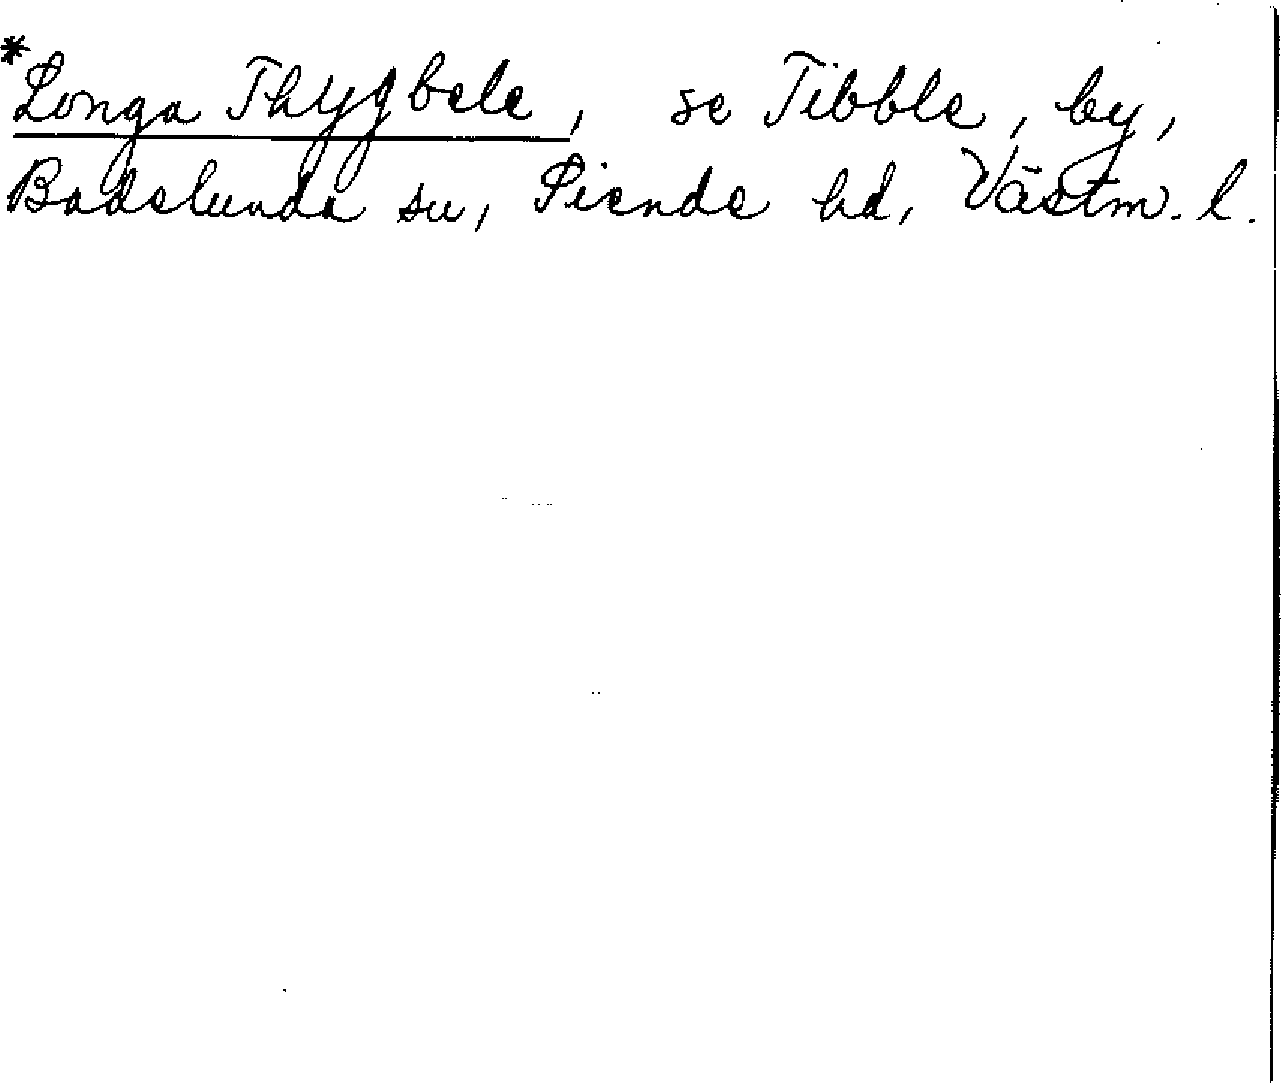 *Longa Thygbele, se Tibble, by,
Badelunda sn, Siende hd, Västm. l.